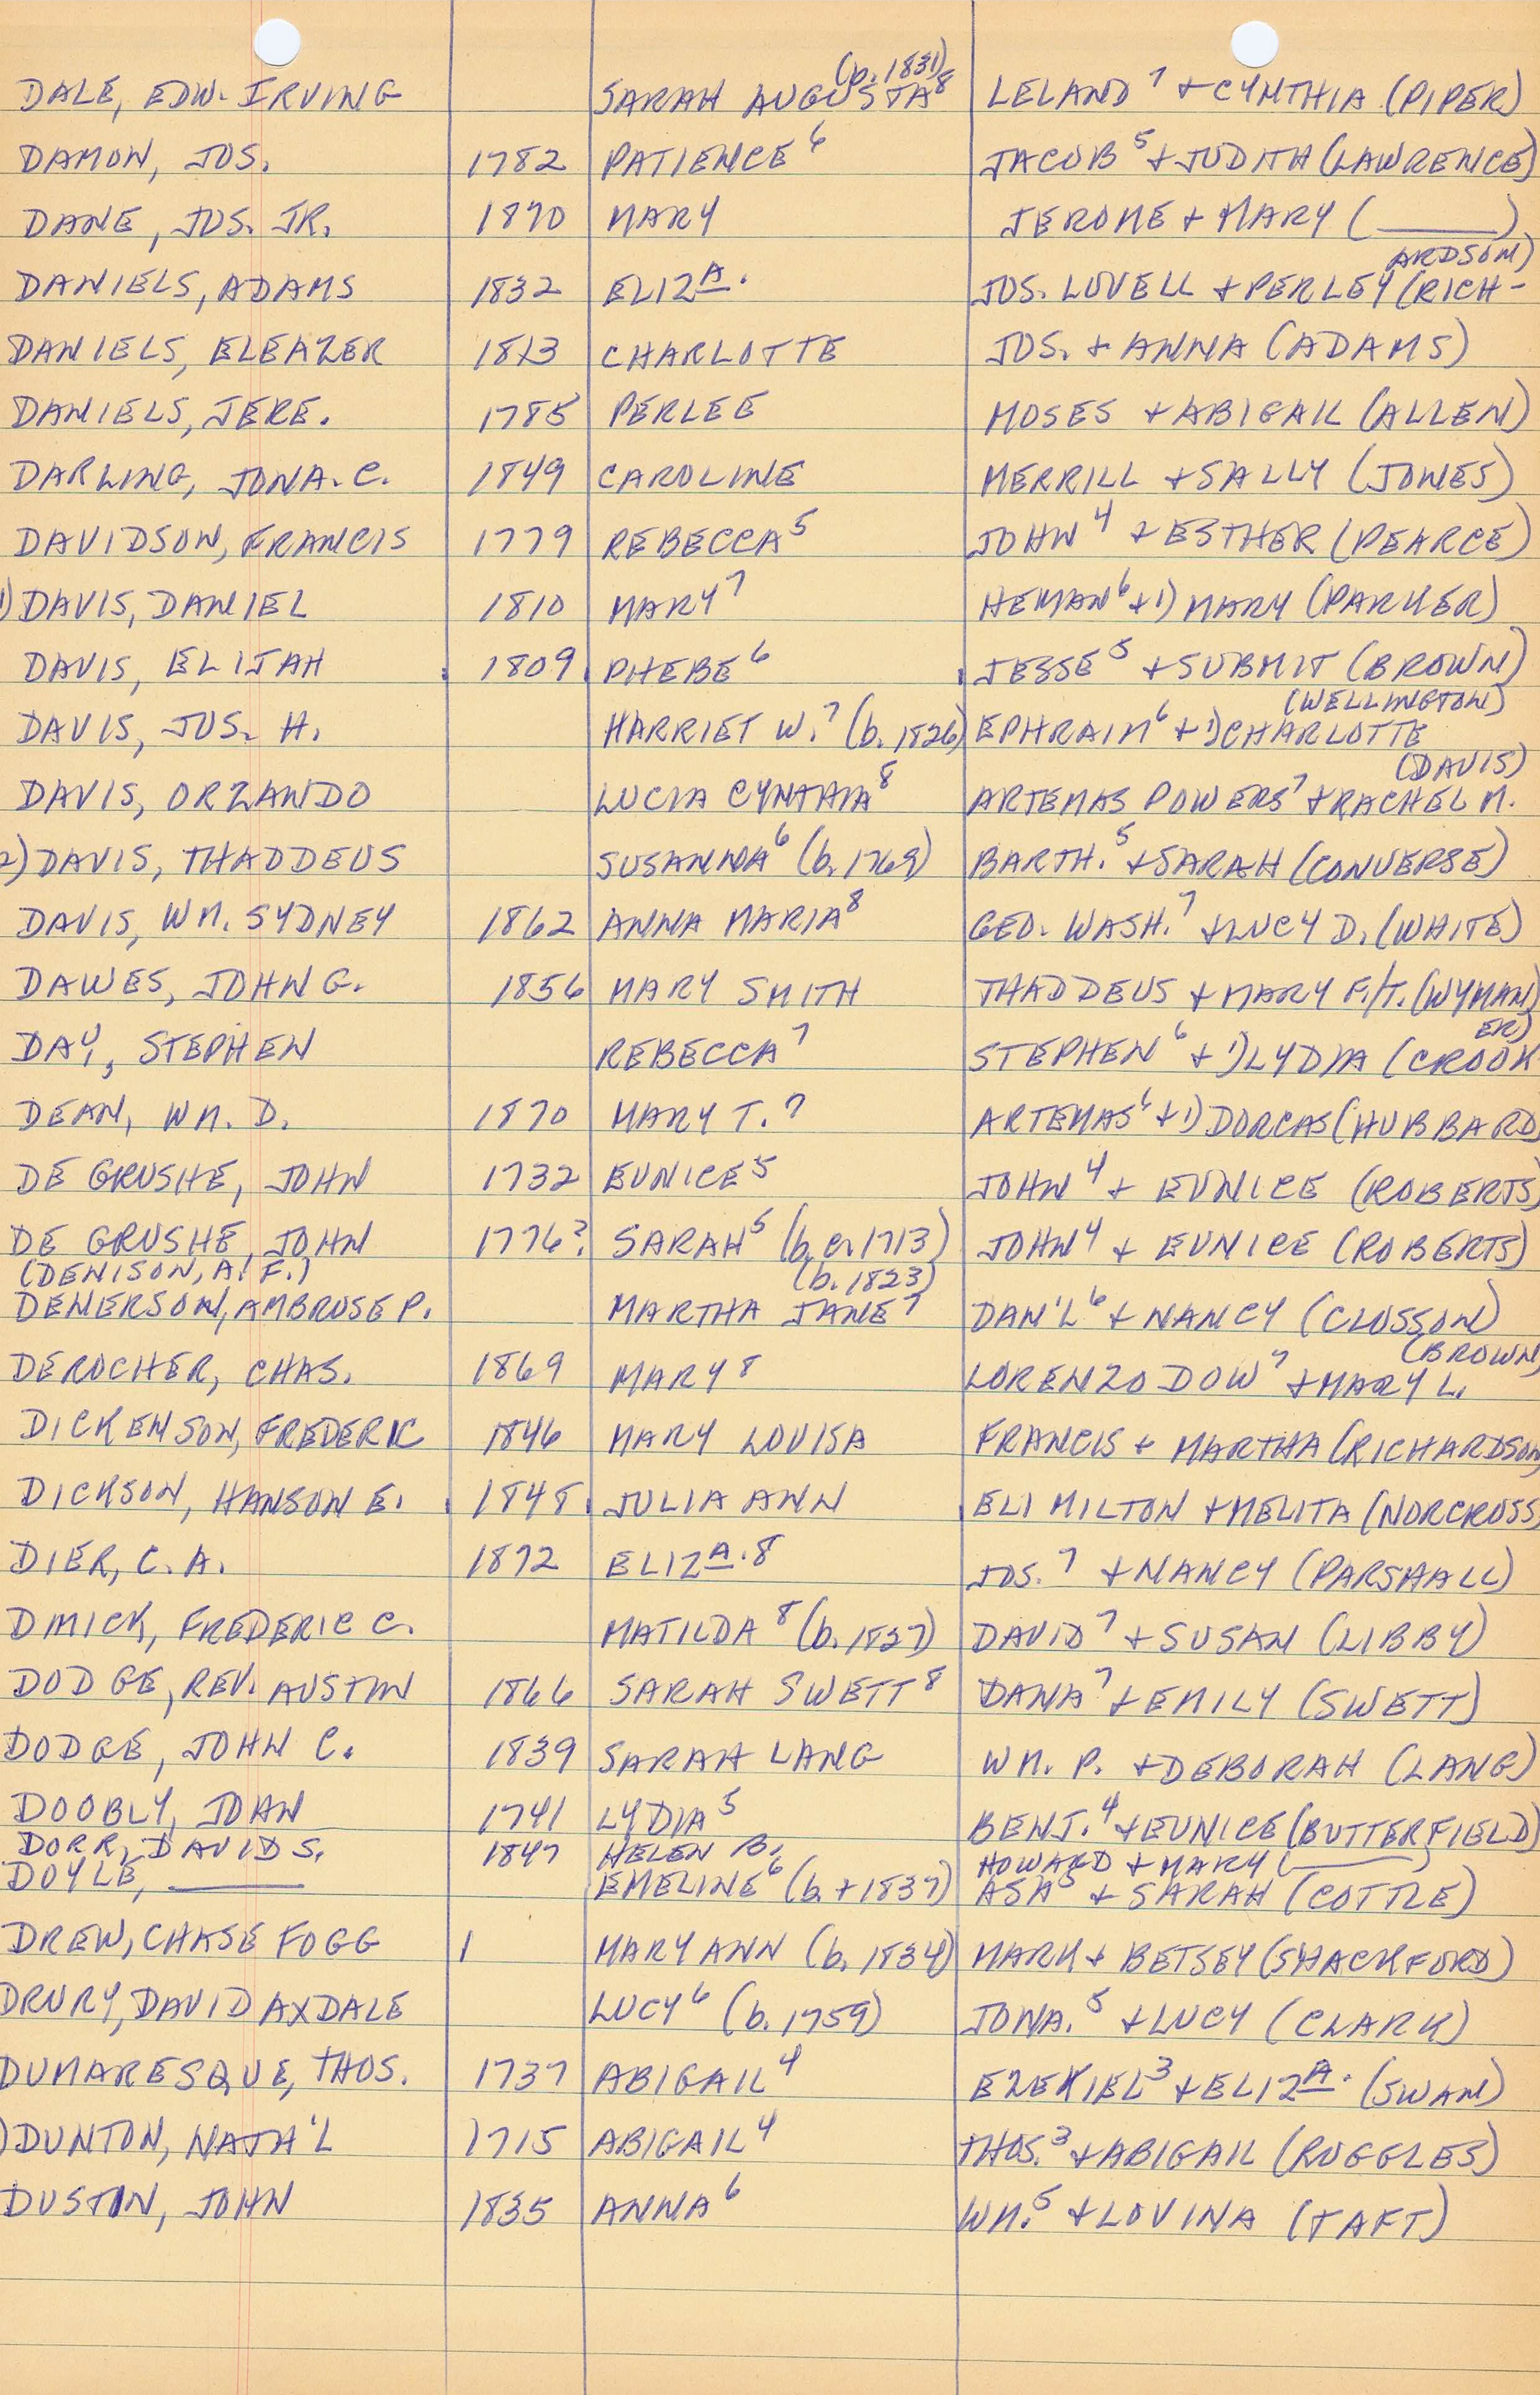 DALE, EDW. IRVING SARAH AUGUSTA⁸ (b. 1831) LELAND⁷ + CYNTHIA (PIPER)
DAMON, JOS. 1782 PATIENCE⁶ JACOB⁵ + JUDITH (LAWRENCE)
DANE, JOS. JR. 1870 MARY JEROME + MARY (______)
DANIELS, ADAMS 1832 ELIZA. JOS. LOVELL + PERLEY (RICH-ARDSON)
DANIELS, ELEAZER 1813 CHARLOTTE JOS. + ANNA (ADAMS)
DANIELS, JERE. 1785 PERLEE MOSES + ABIGAIL (ALLEN)
DARLING, JONA. C. 1849 CAROLINE MERRILL + SALLY (JONES)
DAVIDSON, FRANCIS 1779 REBECCA⁵ JOHN⁴ + ESTHER (PEARCE)
1) DAVIS, DANIEL 1810 MARY⁷ HEMAN⁶ + 1) MARY (PARKER)
DAVIS, ELIJAH 1809 PHEBE⁶ JESSE⁵ + SUBMIT (BROWN)
DAVIS, JOS. H. HARRIET W.⁷ (b. 1826) EPHRAIM⁶ + 1) CHARLOTTE (WELLINGTON)
DAVIS, ORZANDO LUCIA CYNTHIA⁸ ARTEMAS POWERS⁷ + RACHEL M. (DAVIS)
2) DAVIS, THADDEUS SUSANNA⁶ (b. 1769) BARTH.⁵ + SARAH (CONVERSE)
DAVIS, WM. SYDNEY 1862 ANNA MARIA⁸ GEO. WASH.⁷ + LUCY D. (WHITE)
DAWES, JOHN G. 1856 MARY SMITH THADDEUS + MARY F./T. (WYMAN)
DAY, STEPHEN REBECCA⁷ STEPHEN⁶ + 1) LYDIA (CROOKER)
DEAN, WM. D. 1870 MARY T.⁷ ARTEMAS⁶ + 1) DORCAS (HUBBARD
DE GRUSHE, JOHN 1732 EUNICE⁵ JOHN⁴ + EUNICE (ROBERTS)
DE GRUSHE, JOHN 1776? SARAH⁵ (b. c. 1713) JOHN⁴ + EUNICE (ROBERTS)
(DENISON, A. F.) (b. 1823)
DENERSON, AMBROSE P. MARTHA JANE⁷ DAN'L⁶ + NANCY (CLOSSON)
DEROCHER, CHAS. 1869 MARY⁸ LORENZO DOW⁷ + MARY L. (BROWN)
DICKENSON, FREDERIC 1846 MARY LOUISA FRANCIS + MARTHA (RICHARDSON)
DICKSON, HANSON E. 1848 JULIA ANN ELI MILTON + MELITA (NORCROSS)
DIER, C. A. 1872 ELIZA.⁸ JOS.⁷ + NANCY (PARSHALL)
DMICK, FREDERIC C. MATILDA⁸ (b. 1837) DAVID⁷ + SUSAN (LIBBY)
DODGE, REV. AUSTIN 1866 SARAH SWETT⁸ DANA⁷ + EMILY (SWETT)
DODGE, JOHN C. 1839 SARAH LANG WM. P. + DEBORAH (LANG)
DOOBLY, JOHN 1741 LYDIA⁵ BENJ.⁴ + EUNICE (BUTTERFIELD)
DORR, DAVID S. 1847 HELEN B. HOWARD + MARY (______)
DOYLE, ______ EMELINE⁶ (b. + 1837) ASA⁵ + SARAH (COTTLE)
DREW, CHASE FOGG 1 MARY ANN (b. 1834) MARK + BETSEY (SHACKFORD)
DRURY, DAVID AXDALE LUCY⁶ (b. 1759) JONA.⁵ + LUCY (CLARK)
DUMARESQUE, THOS. 1737 ABIGAIL⁴ EZEKIEL³ + ELIZA. (SWAN)
) DUNTON, NATH'L 1715 ABIGAIL⁴ THOS.³ + ABIGAIL (RUGGLES)
DUSTIN, JOHN 1835 ANNA⁶ WM.⁵ + LOVINA (TAFT)